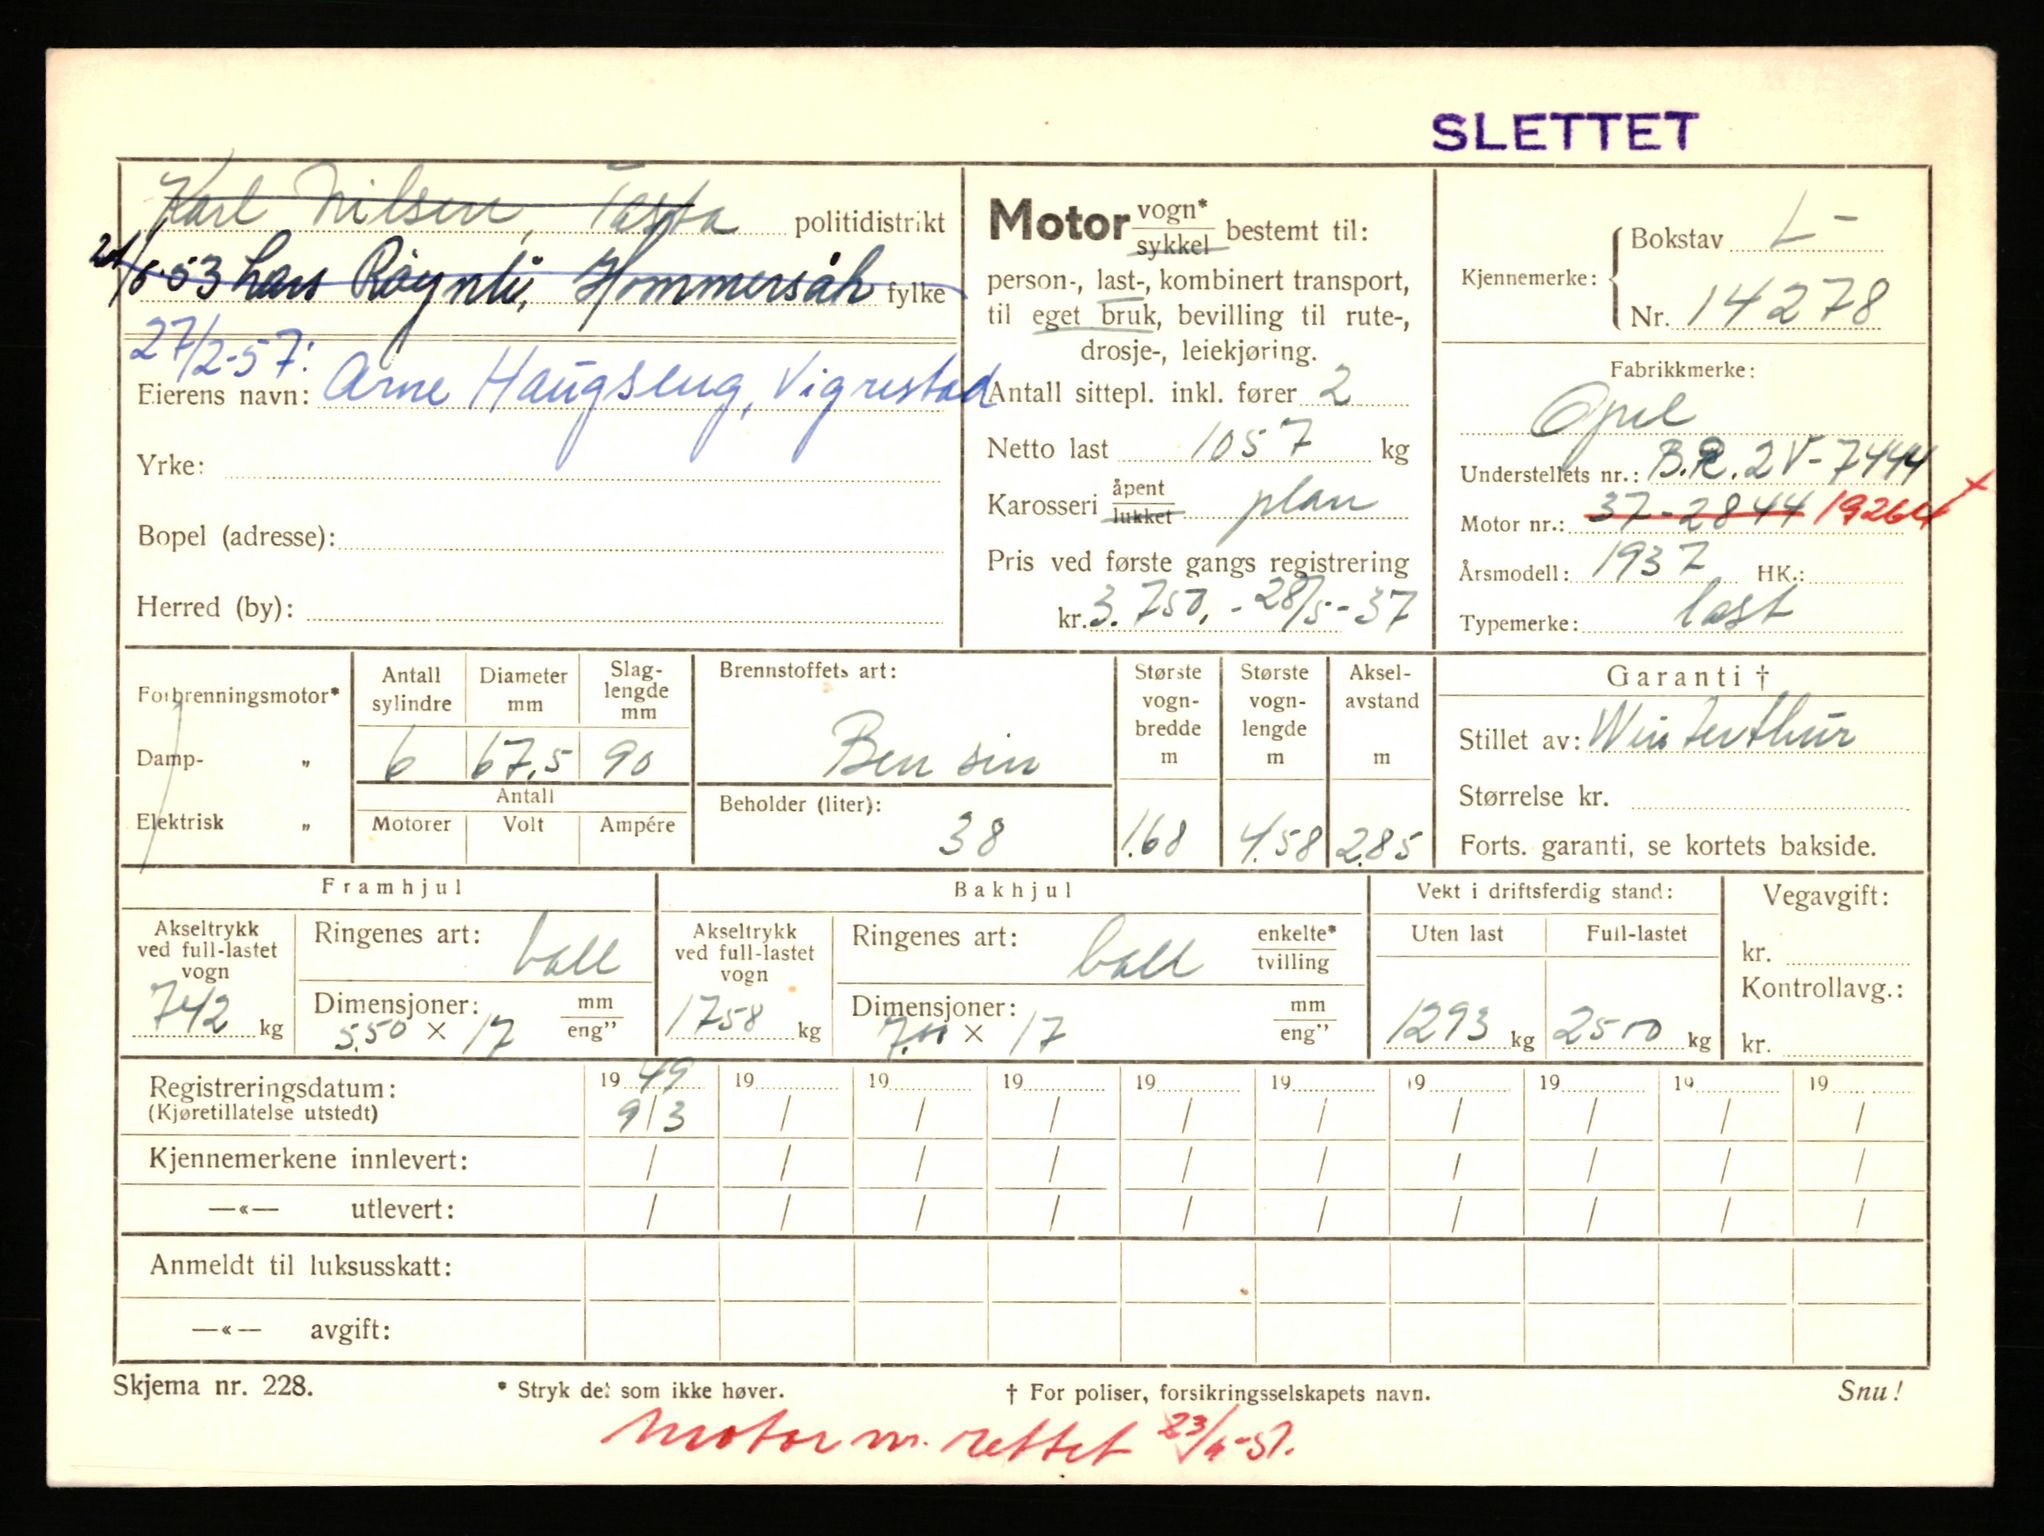 SLETTET
Karl Nilsen, Tasta politidistrikt
21/5-53 Lars Röynli, Hommersåk fylke
27/2-57:
Eierens navn: Arne Haugseng, Vigrestad
Yrke:
Bopel (adresse):
Herred (by):
Motor vogn* sykkel bestemt til:
person-, last-, kombinert transport,
til eget bruk, bevilling til rute-,
drosje-, leiekjøring.
Antall sittepl. inkl. fører 2
Netto last 1057 kg
Karosseri åpent lukket plan
Pris ved første gangs registrering
kr. 3.750,- 28/5-37
Kjennemerke: Bokstav L-
Nr. 14278
Fabrikkmerke:
Opel
Understellets nr.: B.R.2V-7444
Motor nr.: 37-2844 19264 x
Årsmodell: 1937 HK.:
Typemerke: last
Forbrenningsmotor*
Damp- „
Elektrisk „
Antall sylindre
Diameter mm
Slag-lengde mm
6 67,5 90
Antall
Motorer Volt Ampére
Brennstoffets art:
Bensin
Beholder (liter):
38
Største vogn-bredde m
1.68
Største vogn-lengde m
4.58
Aksel-avstand m
2.85
Garanti †
Stillet av: Winterthur
Størrelse kr.
Forts. garanti, se kortets bakside.
Framhjul
Akseltrykk ved full-lastet vogn
742 kg
Ringenes art: ball
Dimensjoner: mm eng”
5.50 × 17
Bakhjul
Akseltrykk ved full-lastet vogn
1758 kg
Ringenes art: ball enkelte* tvilling
Dimensjoner: mm eng”
7.00 × 17
Vekt i driftsferdig stand:
Uten last Full-lastet
1293 kg 2500 kg
Vegavgift:
kr.
Kontrollavg.:
kr.
Registreringsdatum: 19 49 19 19 19 19 19 19 19 19 19
(Kjøretillatelse utstedt) 9/3 / / / / / / / / /
Kjennemerkene innlevert: / / / / / / / / / /
—«— utlevert: / / / / / / / / / /
Anmeldt til luksusskatt:
—«— avgift:
Skjema nr. 228. * Stryk det som ikke høver. † For poliser, forsikringsselskapets navn. Snu!
Motor nr. rettet